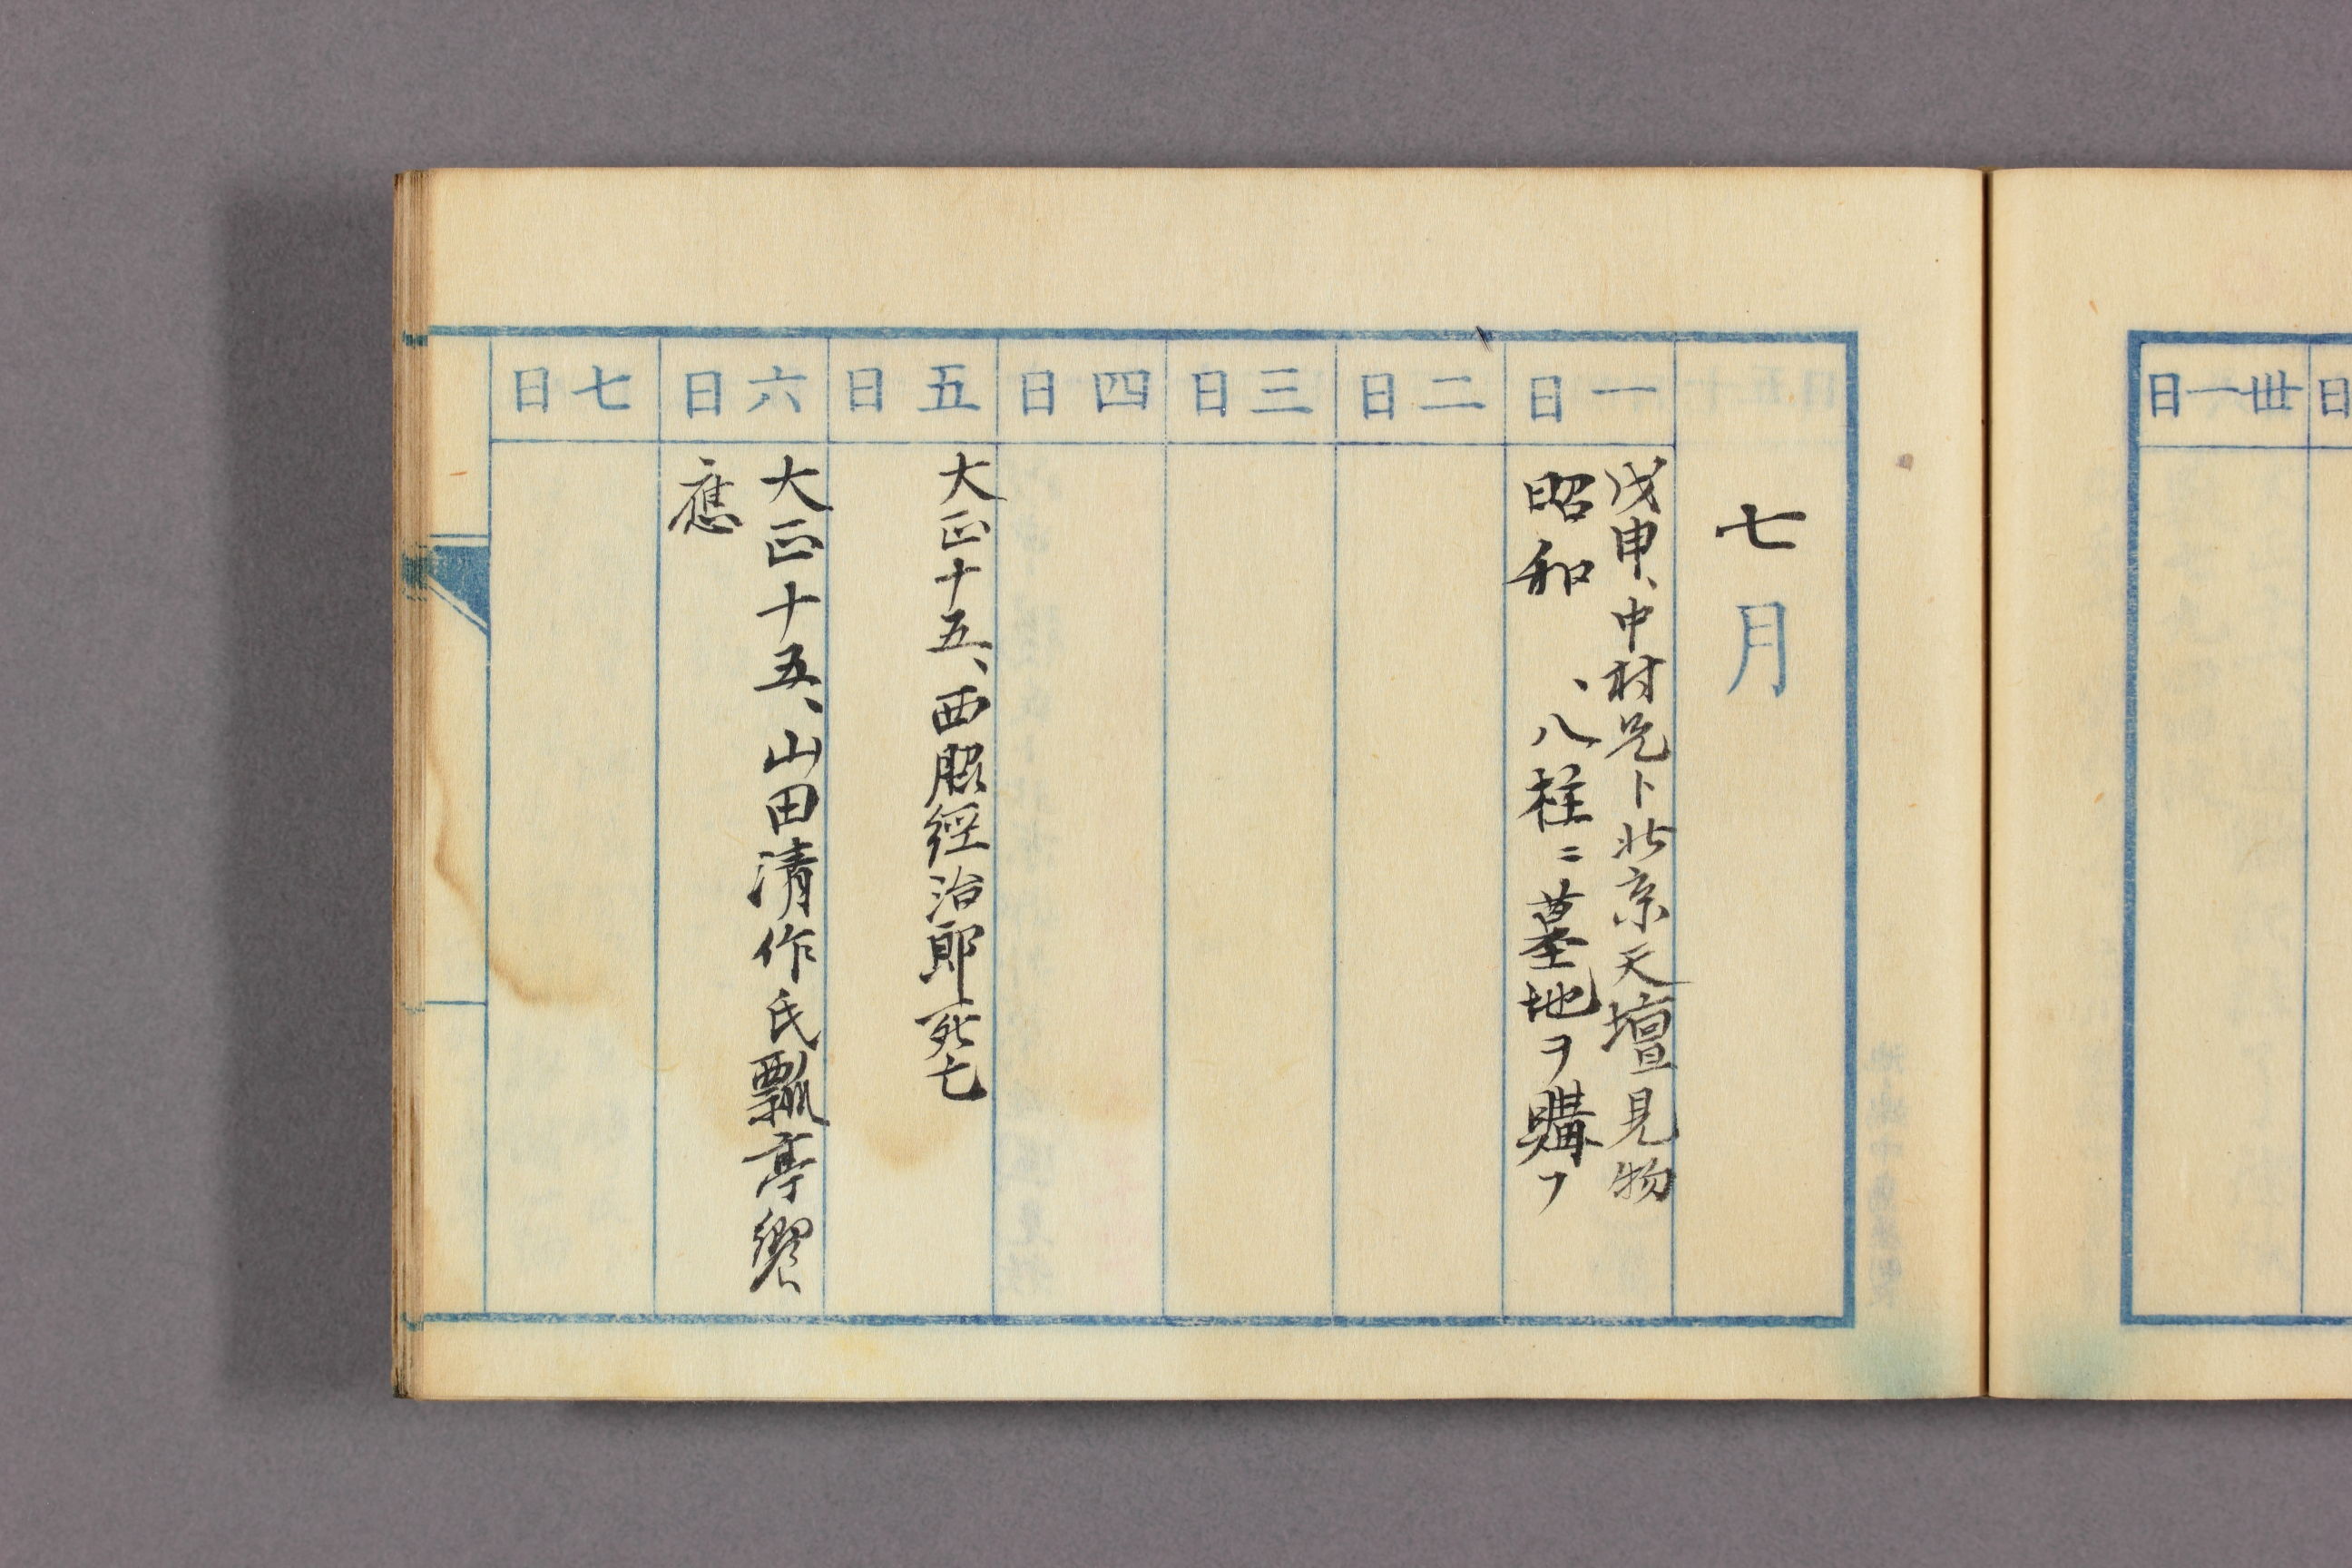 卅一日
日
七月
一日
戊申、中村兄ト北京天壇見物
昭和　、八柱ニ墓地ヲ購フ
二日
三日
四日
五日
大正十五、西脇經治郎死亡
六日
大正十五、山田清作氏瓢亭饗
應
七日